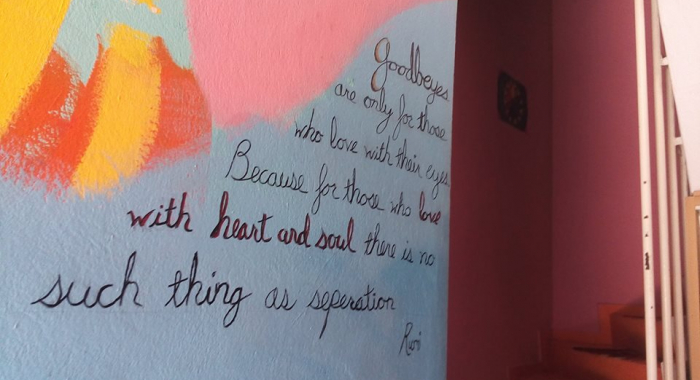 Goodbeyes
are only for those
who love with their eyes
Because for those who love
with heart and soul there is no
such thing as seperation
Rumi